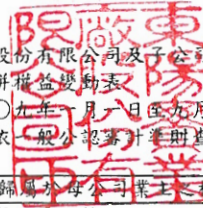 東陽實業
廠股份有
限公司印
股份有限公司及子公司
併權益變動表
〇九年一月一日至九月
依一般公認審計準則查
歸屬於母公司業主之權